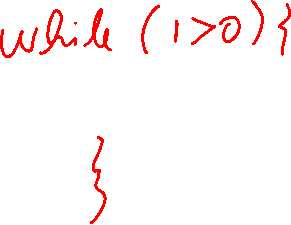 while (1>0){
}